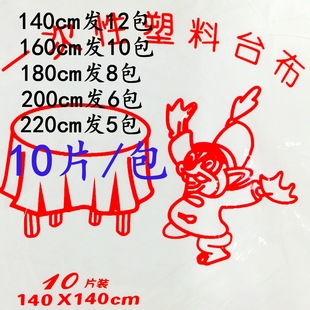 一次性塑料台布
140cm发12包
160cm发10包
180cm发8包
200cm发6包
220cm发5包
10片/包
10片装
140X140cm